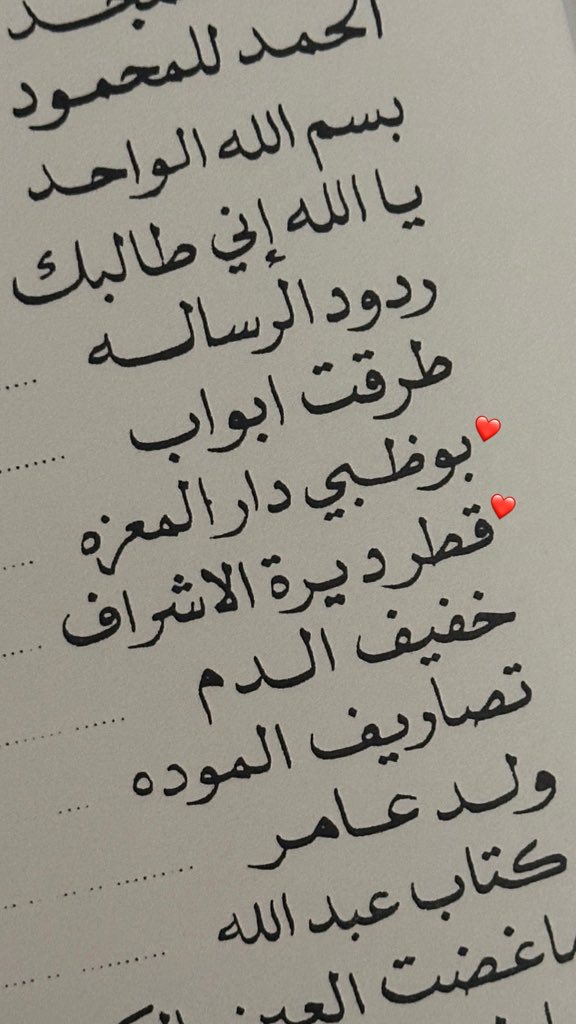 الحمد للمحمود
بسم الله الواحد
يا الله إني طالبك
ردود الرساله
طرقت ابواب
بوظبي دار المعزه
قطر ديرة الاشراف
خفيف الدم
تصاريف الموده
ولد عامر
كتاب عبد الله
ماغضت العين